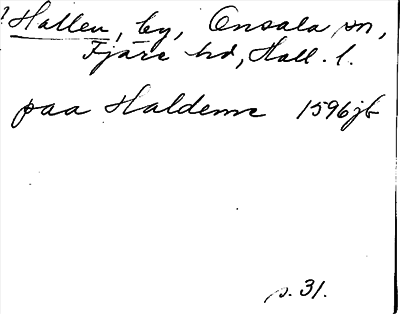 ? Hallen, by, Onsala sn,
Fjäre hd, Hall. l.
paa Haldenne 1596 jb
s. 31.